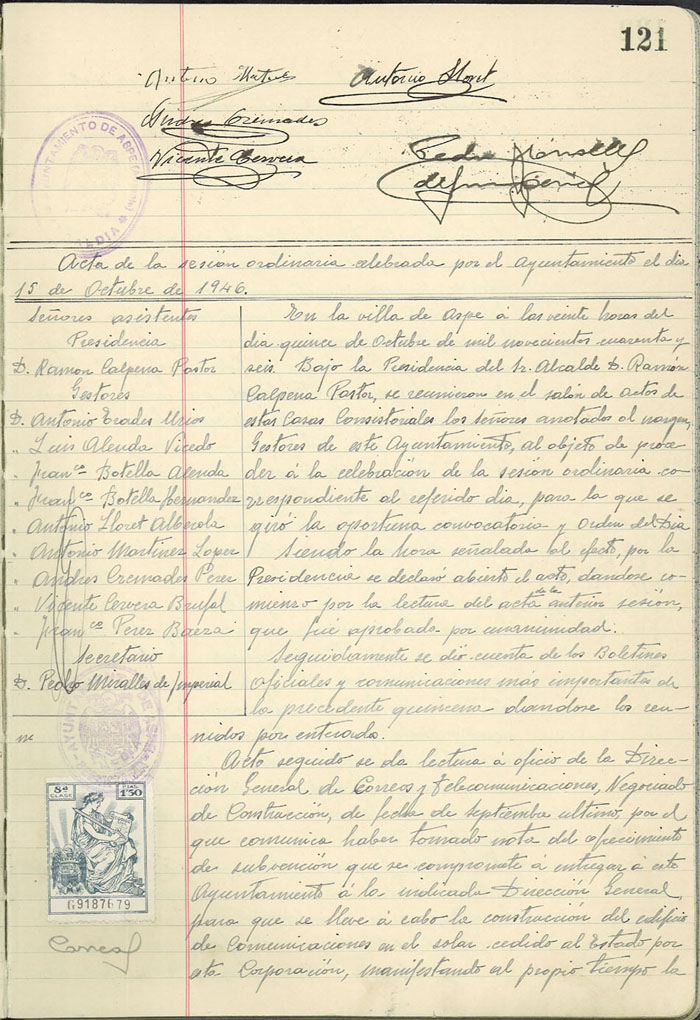 121
Antonio
Antonio Lloret
Andres Cremades
Vicente Cervera
Pedro Miralles
de Imperial
AYUNTAMIENTO DE ASPE
Acta de la sesión ordinaria celebrada por el Ayuntamiento el dia
15 de Octubre de 1946.
Señores asistentes
Presidencia
D. Ramon Calpena Pastor
Gestores
D. Antonio Erades Urios
" Luis Alenda Vicedo
" Franco Botella Alenda
" Franco Botella Hernandez
" Antonio Lloret Alberola
" Antonio Martinez Lopez
" Andres Cremades Perez
" Vicente Cervera Brufal
" Franco Perez Baeza
Secretario
D. Pedro Miralles de Imperial
En la villa de Aspe á las veinte horas del
dia quince de Octubre de mil novecientos cuarenta y
seis. Bajo la Presidencia del Sr. Alcalde D. Ramón
Calpena Pastor, se reunieron en el salón de actos de
estas Casas Consistoriales los señores anotados al margen,
Gestores de este Ayuntamiento, al objeto de proce-
der á la celebración de la sesión ordinaria co-
rrespondiente al referido dia, para la que se
giró la oportuna convocatoria y Orden del Dia
Siendo la hora señalada al efecto, por la
Presidencia se declaró abierto el acto, dandose co-
mienzo por la lectura del acta de la anterior sesión,
que fué aprobada por unanimidad.
Seguidamente se dió cuenta de los Boletines
Oficiales y comunicaciones mas importantes de
la precedente quincena dandose los reu-
nidos por enterado.
Acto seguido se da lectura á oficio de la Direc-
ción General de Correos y Telecomunicaciones, Negociado
de Construcción, de fecha de septiembre ultimo, por el
que comunica haber tomado nota del ofrecimiento
de subvención que se compromete á entregar á este
Ayuntamiento á la indicada Dirección General,
para que se lleve á cabo la construcción del edificio
de Comunicaciones en el solar cedido al Estado por
esta Corporación, manifestando al propio tiempo la
8ª CLASE
PTAS 1'50
G9187679